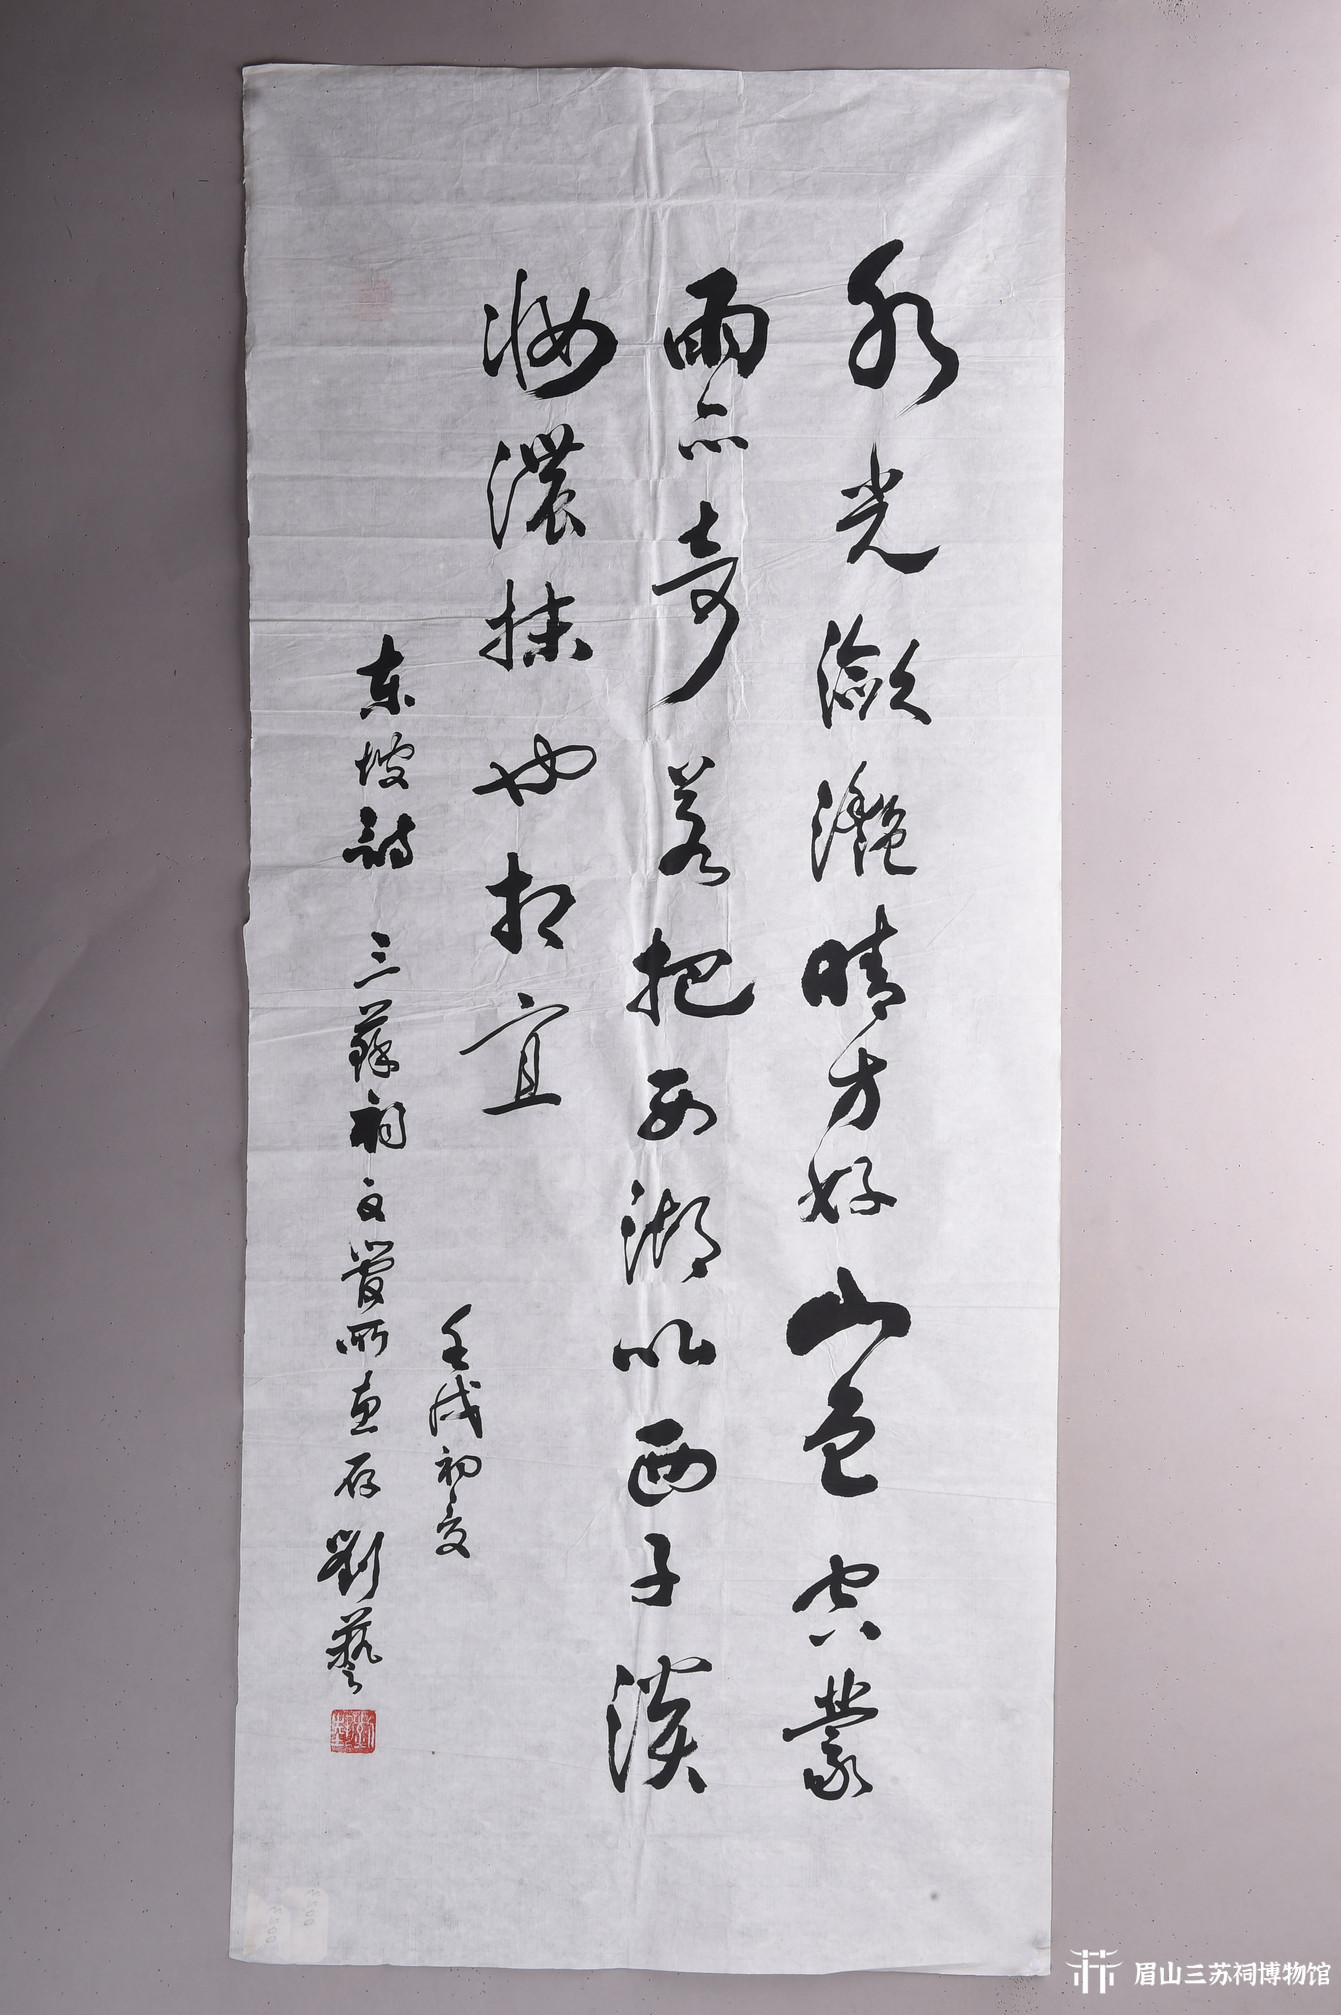 水光潋滟晴方好山色空蒙
雨亦奇若把西湖比西子淡
妆濃抹也相宜
壬戌初夏
东坡詩 三蘇祠文管所惠存 劉藝
眉山三苏祠博物馆